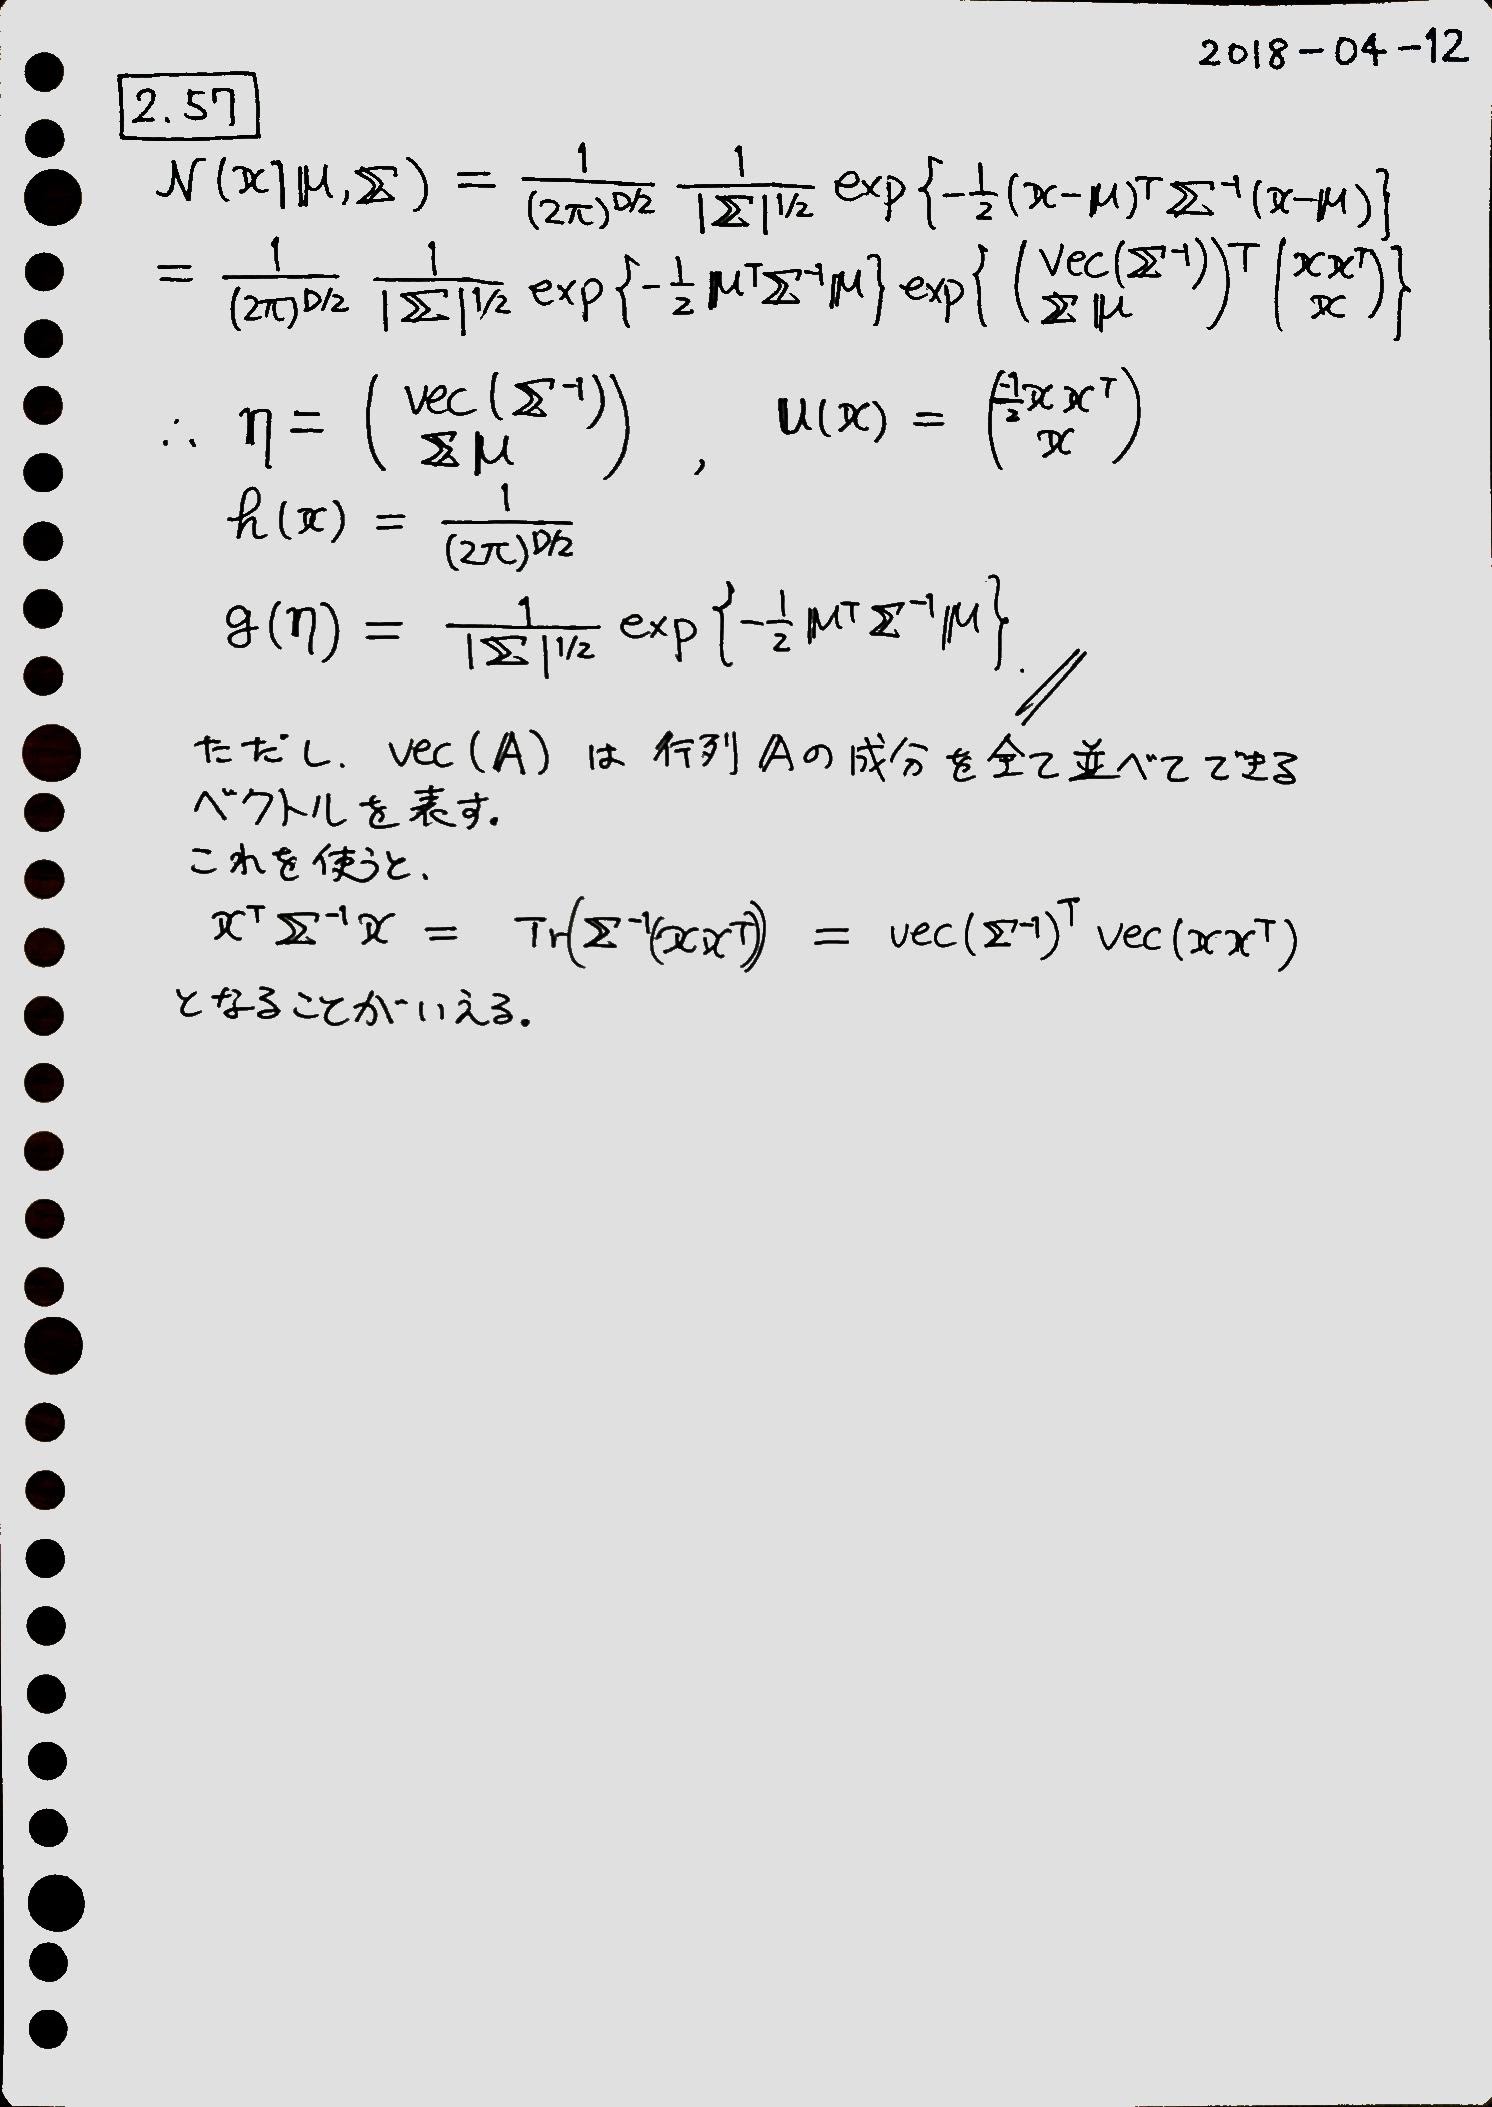 2018-04-12
2.57
N(x|μ,Σ) = 1/(2π)^{D/2} 1/|Σ|^{1/2} exp{-1/2(x-μ)^T Σ^{-1}(x-μ)}
= 1/(2π)^{D/2} 1/|Σ|^{1/2} exp{-1/2 μ^T Σ^{-1} μ} exp{(vec(Σ^{-1}) Σμ)^T (xx^T x)}
∴ η = (vec(Σ^{-1}) Σμ), u(x) = (-1/2 xx^T x)
h(x) = 1/(2π)^{D/2}
g(η) = 1/|Σ|^{1/2} exp{-1/2 μ^T Σ^{-1} μ}.
ただし. vec(A) は 行列 A の成分を全て並べてできる
ベクトルを表す.
これを使うと.
x^T Σ^{-1} x = Tr(Σ^{-1}(xx^T)) = vec(Σ^{-1})^T vec(xx^T)
となることがいえる.